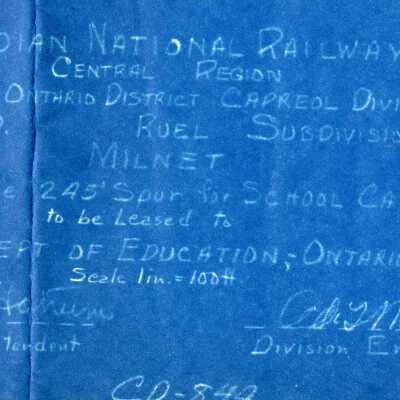 DIAN NATIONAL RAILWAY
CENTRAL REGION
ONTARIO DISTRICT CAPREOL DIVI
RUEL SUBDIVISIO
MILNET
e 245' Spur for SCHOOL CA
to be Leased to
EPT OF EDUCATION, ONTARIO
Scale 1in. = 100ft.
tendent
DIVISION EN
CD-842